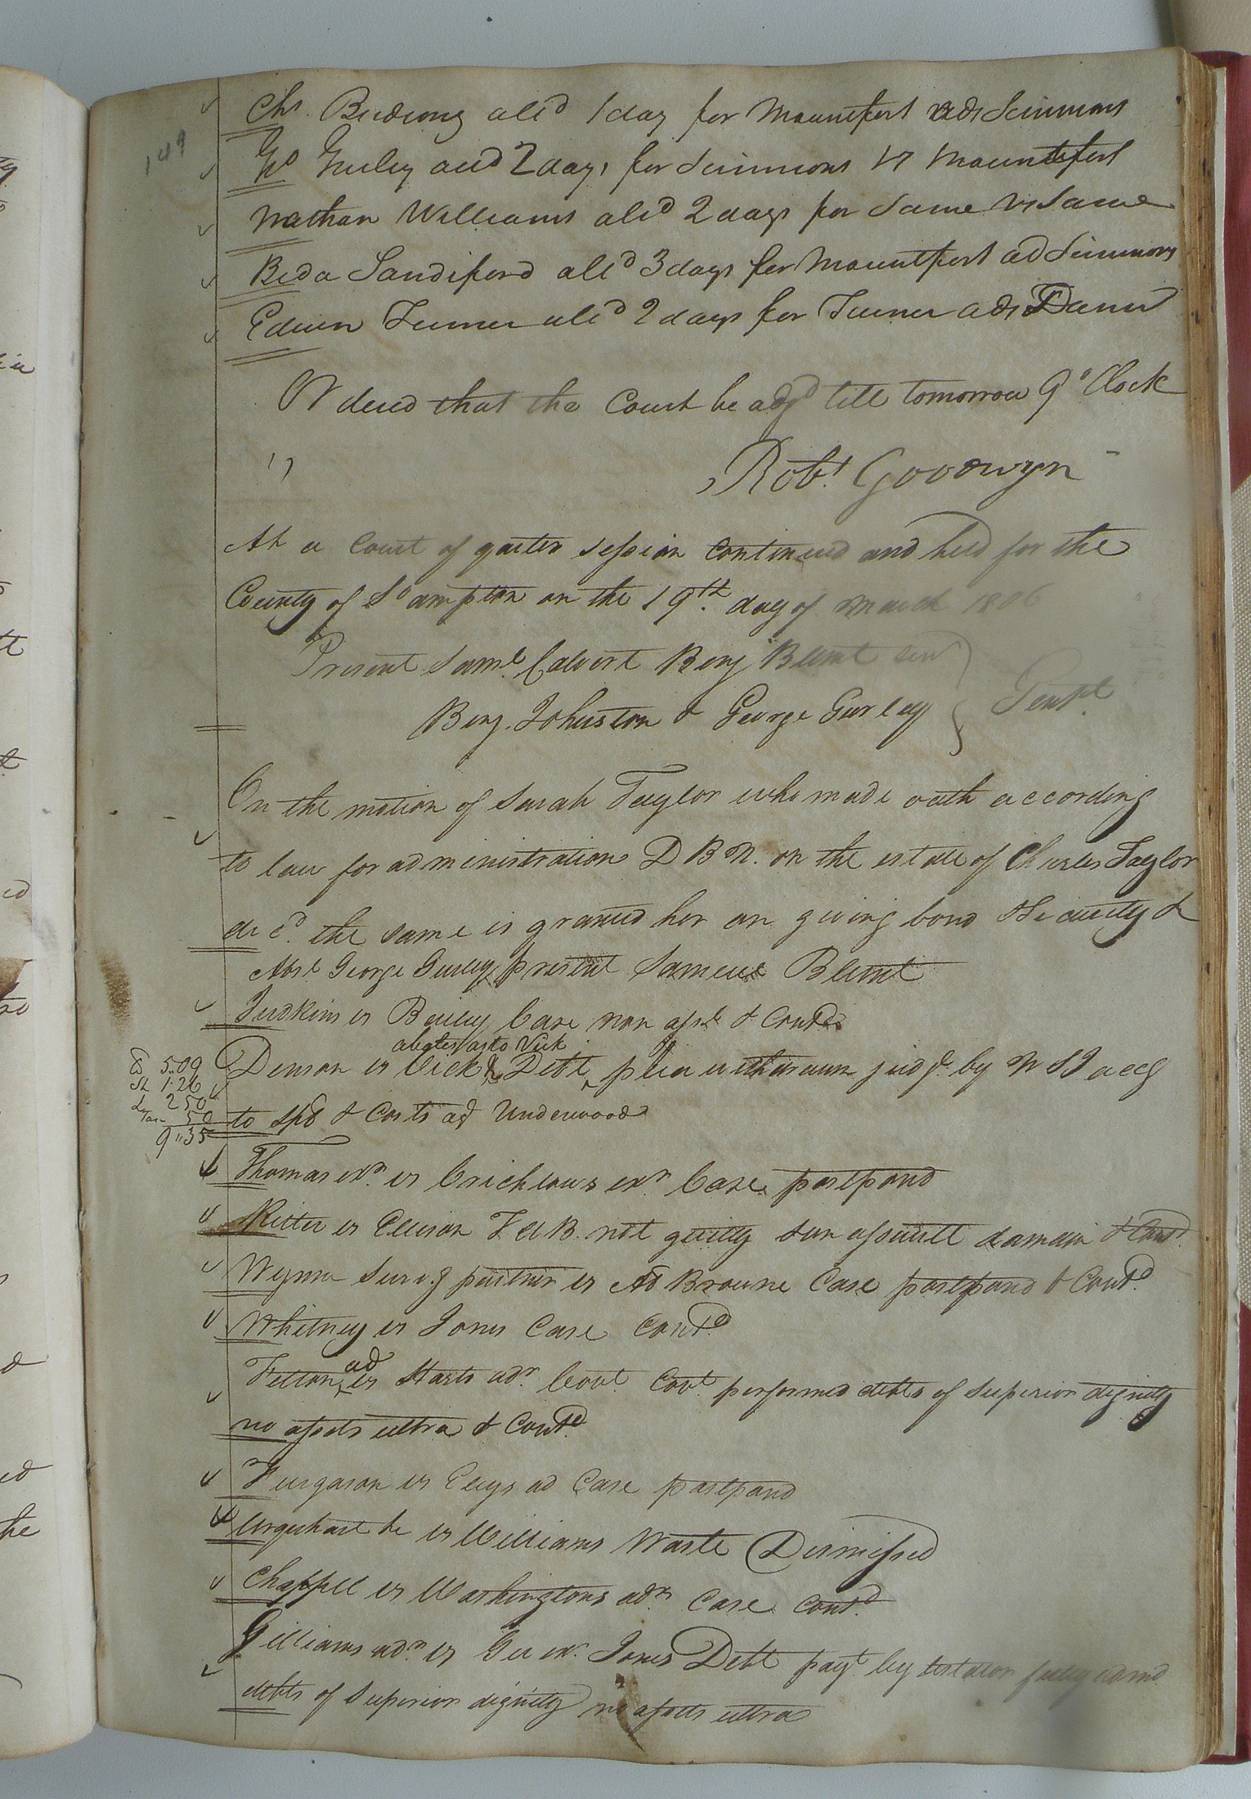 149
Chs. alld 1 day for Mountfort ads Simmons
alld 2 days for Simmons vs Mountfort
Nathan Williams alld 2 days for Same vs Same
Beda Sandiford alld 3 days for Mountfort ad Simmons
Edwin Turner alld 2 days for Turner ads
Ordered that the Court be adjd till tomorrow 9 oClock
Robt. Goodwyn
At a Court of quarter session continued and held for the
County of So ampton on the 19th. day of March 1806
Present Saml. Calvert Benj Blunt Senr
Benj. Johnston & George Gurley } Gentl.
On the motion of Sarah Taylor who made oath according
to law for administration D B N. on the estate of Charles Taylor
decd. the same is granted her on giving bond & Security &
Abst George Gurley present Samuel Blunt
Judkins vs Bailey Case non asst & Contd
abates as to Vick
C 5.09
Denson vs Vick & Debt plea withdrawn judgt. by
St 1.26
L 2 50
Tax 50
to spd & Costs agt Underwood
9"35
Thomas exr. vs Crichlows exr. Case postpond
Ritter vs Ellison T A B. not guilty son assault demain & Contd.
Wynn Survg partner vs Ad Browne Case postpond & Contd.
Whitney vs Jones Case Contd.
Felton ad vs Harts adr. Covt. Covt performed debts of Superior dignity
no assets ultra & Contd.
Furgason vs Eleys ad Case postpond
Urquhart &c vs Williams Waste Dismissed
Chappell vs Washingtons adr. Case Contd.
Williams adr. vs exr. Jones Debt payt by testator fully admd
debts of Superior dignity no assets ultra